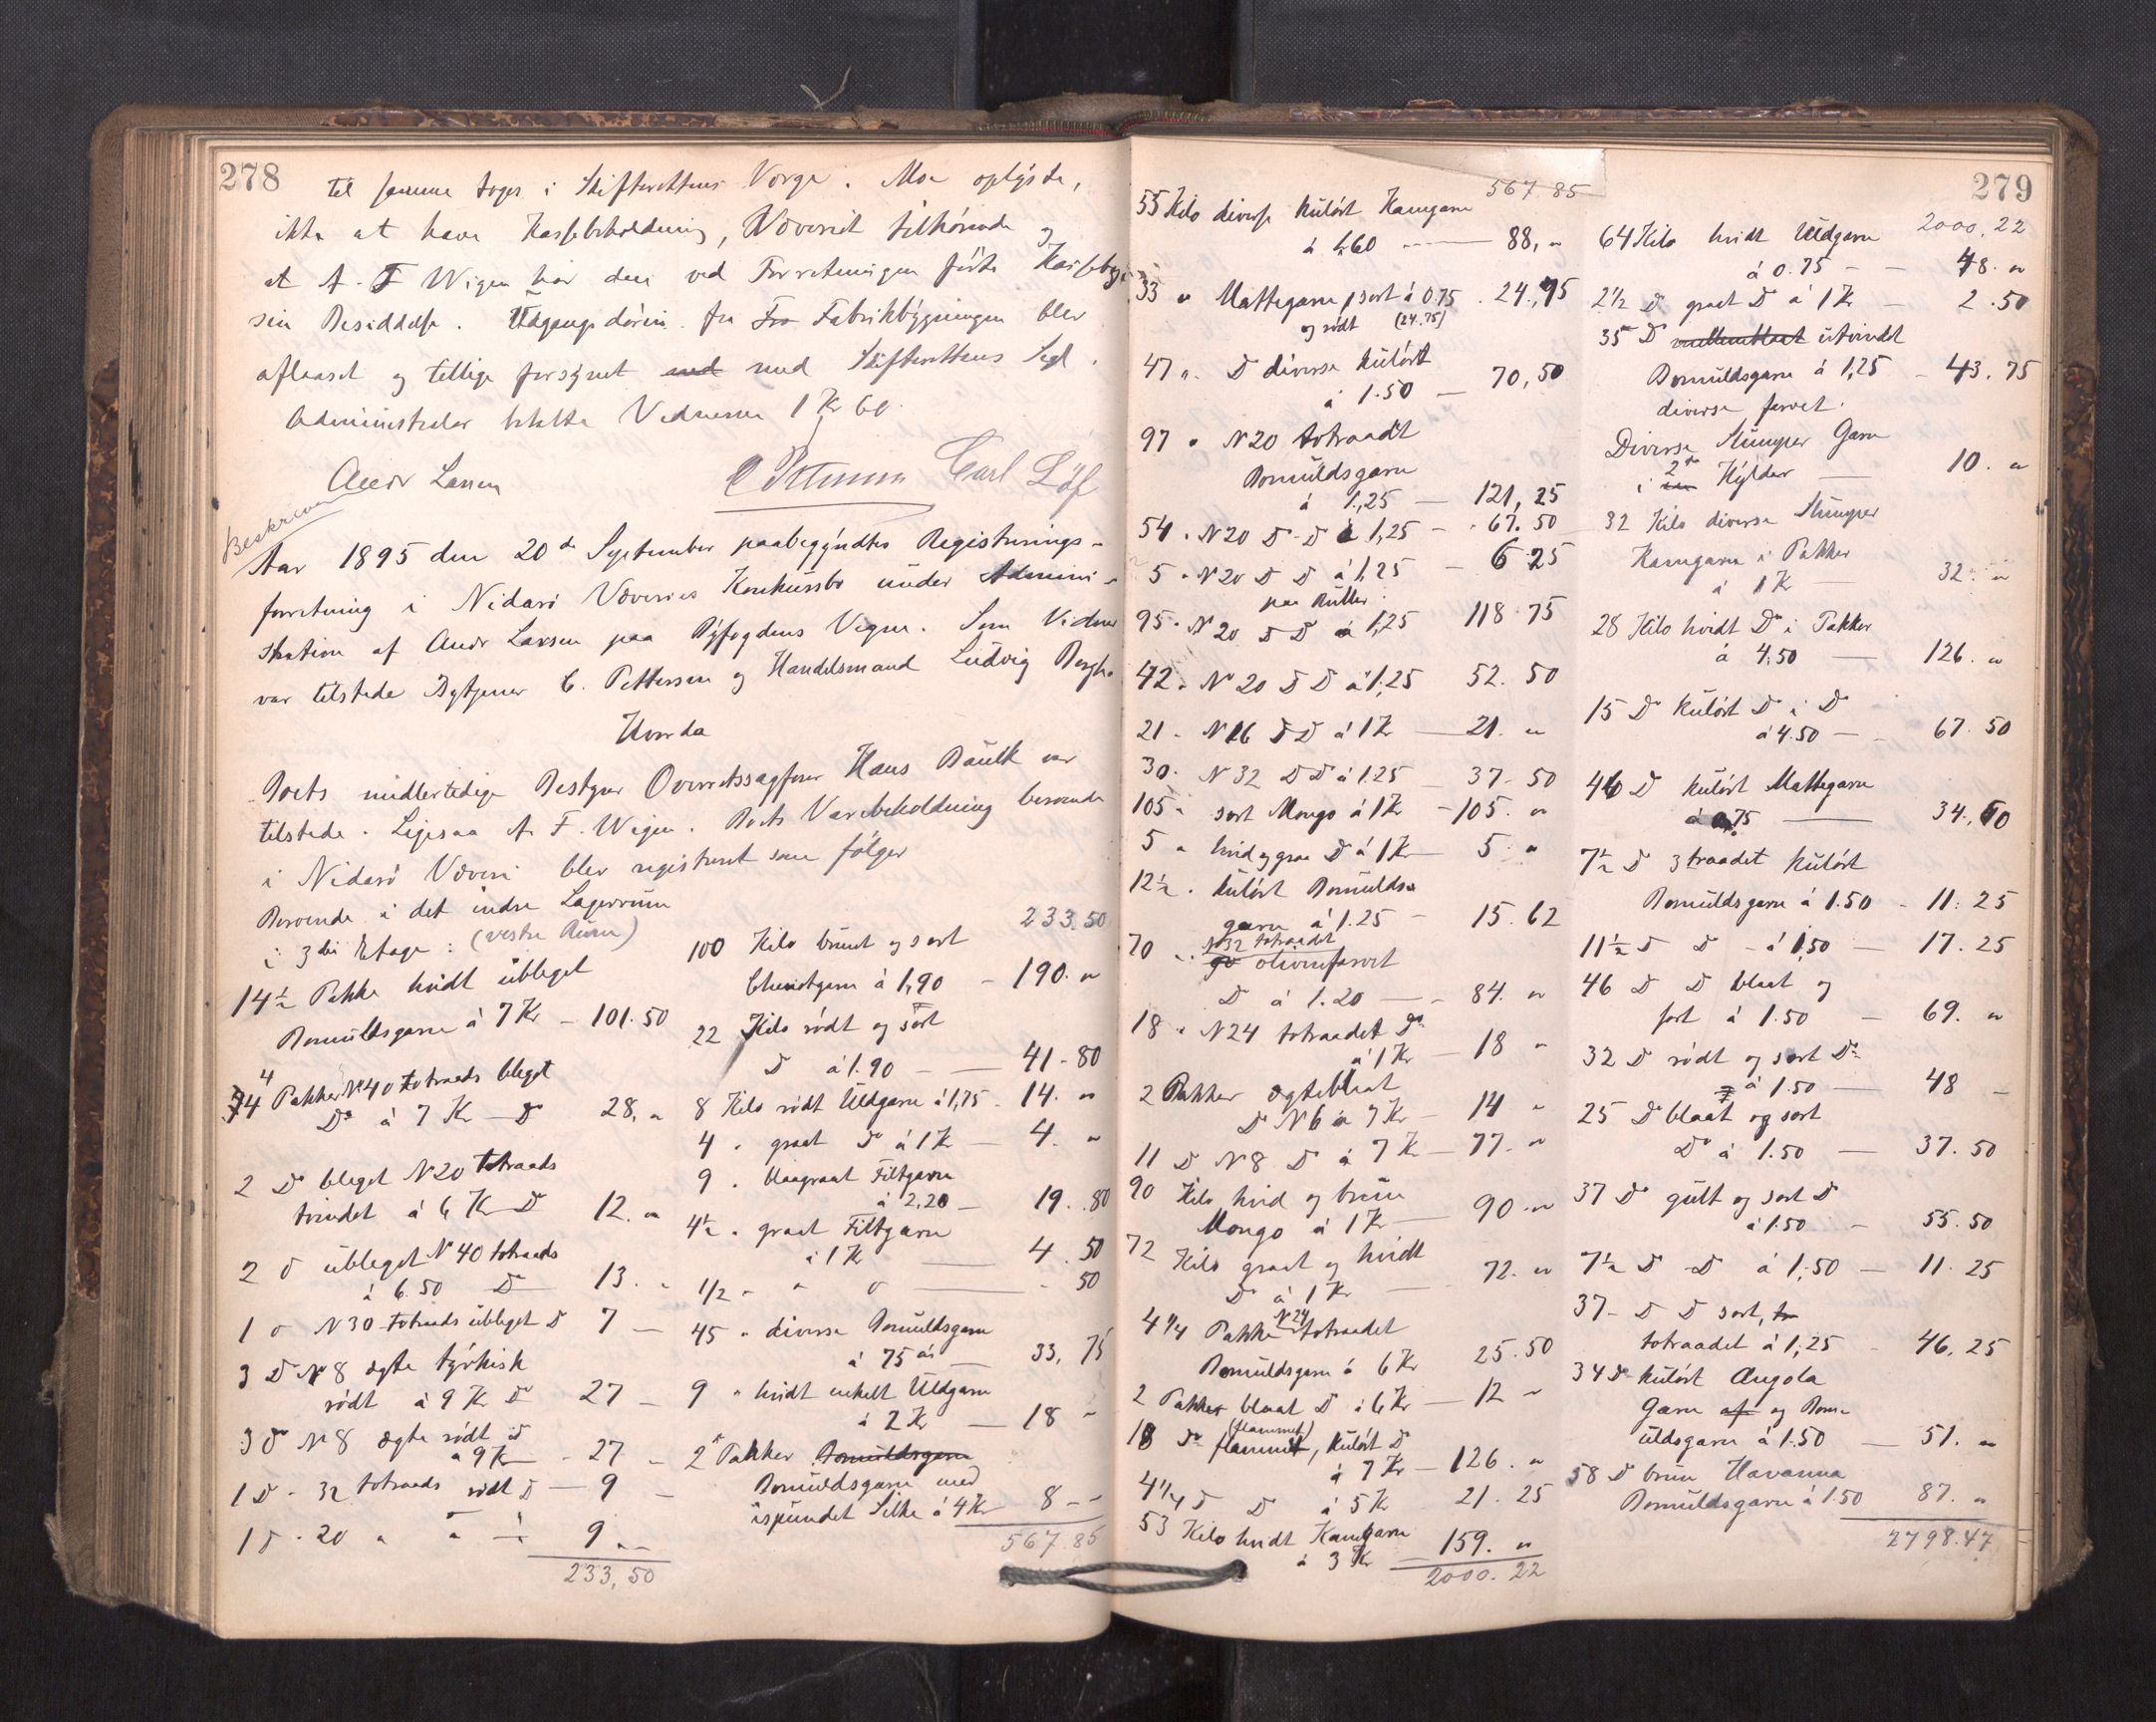 278
til samme toges i Skifterettens Værge. Moe oplyste,
ikke at have Kassebeholdning, Væveriet tilhørende og
at A. F. Wigen har den ved Forretningen førte Kassebog i
sin Besiddelse. Udgangsdøren fra Fabrikbygningen blev
aflaaset og tillige forsynet med Skifterettens Segl.
Administrator betalte Vidnerne 1 Kr 60.
Andr Larsen C Pettersen Carl Löf
Beskreven
Aar 1895 den 20de September paabegyndtes Registrerings-
forretning i Nidarø Væveries Konkursbo under Admini-
stration af Andr Larsen paa Byfogdens Vegne. Som Vidner
var tilstede Bytjener C. Pettersen og Handelsmand Ludvig Bergh.
Hvorda
Boets midlertidige Bestyrer Overretssagfører Hans Bauck var
tilstede. Ligesaa A. F. Wigen. Boets Varebeholdning beroende
i Nidarø Væveri blev registreret som følger
Beroende i det indre Lagerrum
i 3die Etage: (vestre Rum)
14½ Pakke hvidt ubleget
Bomuldsgarn à 7 Kr - 101.50
4 Pakker No 40 totraads bleget
Do à 7 Kr - D 28. "
2 Do bleget N 20 totraads
tvindet à 6 Kr D 12. "
2 D ubleget N 40 totraads
à 6.50 D 13. "
1 D N 30 totraads ubleget D 7 -
3 D N 8 ægte tyrkisk
rødt à 9 Kr D 27 -
3 D N 8 ægte rødt D
à 9 Kr - 27 -
1 D - 32 totraads rødt D - 9 -
1 D - 20 " " - 9 "
233,50
233.50
100 Kilo brunt og sort
Cheviotgarn à 1,90 - 190. "
22 Kilo rødt og sort
D à 1.90 - 41-80
8 Kilo rødt Uldgarn à 1,75 - 14. "
4 " graat Do à 1 K - 4. "
9 " blaagraat Filtgarn
à 2,20 - 19.80
4½ " graat Filtgarn
à 1 K - 4.50
1/2 " " D - 50
45 " diverse Bomuldsgarn
à 75 øre - 33,75
9 " hvidt enkelt Uldgarn
à 2 Kr - 18 -
2 Pakker Bomuldsgarn
Bomuldsgarn med
ispundet Silke à 4 Kr 8 - -
567.85
567.85
55 Kilo diverse kulørt Kamgarn
à 1,60 - 88, "
33 " Mattegarn sort à 0.75 . 24.75
og rødt (24.75)
47 " D diverse kulørt
à 1.50 - 70,50
97 " N 20 totraadt
Bomuldsgarn
à 1,25 - 121,25
54 " N 20 D D à 1,25 - 67.50
5 " N 20 D D à 1,25 - 6 25
paa Ruller
95 " N 20 D D à 1,25 118.75
42 " No 20 D D à 1,25 52.50
21 " N 16 D D à 1 K - 21. "
30 " N 32 D D à 1.25 37-50
105 " sort Mongo à 1 Kr - 105. "
5 " hvid og graa D à 1 Kr - 5. "
12½ " kulørt Bomulds-
garn à 1.25 - 15.62
70 " N 32 totraadet
olivenfarvet
D à 1.20 - 84. "
18 " N 24 totraadet Do
à 1 Kr - 18 "
2 Pakker ægteblaat
D N 6 à 7 Kr - 14 "
11 D N 8 D à 7 K - 77. "
90 Kilo hvid og brun
Mongo à 1 K - 90 "
72 Kilo graat og hvidt
Do à 1 Kr - 72. "
4¼ Pakke No 24 totraadet
Bomuldsgarn à 6 Kr 25.50
2 Pakker blaat D à 6 Kr - 12 "
18 Do flammet (flammet), kulørt D
à 7 Kr - 126. "
4¼ D D à 5 K 21.25
53 Kilo hvidt Kamgarn
à 3 Kr - 159. "
2000.22
279
2000.22
64 Kilo hvidt Uldgarn
à 0.75 - 48. "
2½ D graat D à 1 Kr - 2.50
35 D utvindt
Bomuldsgarn à 1,25 - 43.75
diverse farvet.
Diverse Stumper Garn
i 2de Hylder - 10. "
32 Kilo diverse Stumper
Kamgarn i Pakker
à 1 K - 32. "
28 Kilo hvidt Do i Pakker
à 4.50 - 126. "
15 Do kulørt D i D
à 4.50 - 67.50
46 D kulørt Mattegarn
à 0,75 - 34.50
7½ D 3traadet kulørt
Bomuldsgarn à 1.50 - 11.25
11½ D D - à 1,50 - 17.25
46 D D blaat og
sort à 1.50 - 69. "
32 D rødt og sort Do
à 1.50 - 48 -
25 Do blaat og sort
Do à 1.50 - 37.50
37 Do gult og sort D
à 1.50 - 55.50
7½ D D à 1,50 - 11.25
37 - D D sort,
totraadet à 1,25 - 46,25
34 Do kulørt Angola
Garn af og Bom-
uldsgarn à 1.50 - 51. "
58 D brun Havanna
Bomuldsgarn à 1.50 87. "
2798.47